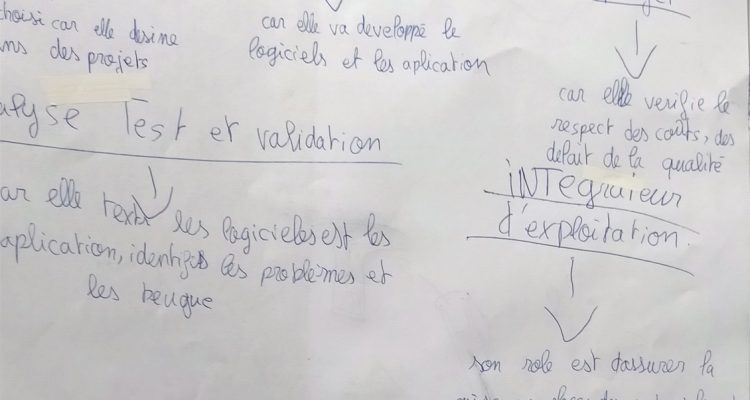 choisi car elle desine
ns des projets
car elle va developpé le
logiciels et les aplication
car elle verifie le
respect des coûts, des
defait de la qualité
alyse Test et validation
car elle les logicieles est les
aplication, identifies les problèmes et
les beugue
iNTegruieur
d'exploitation.
son role est d'assurer la